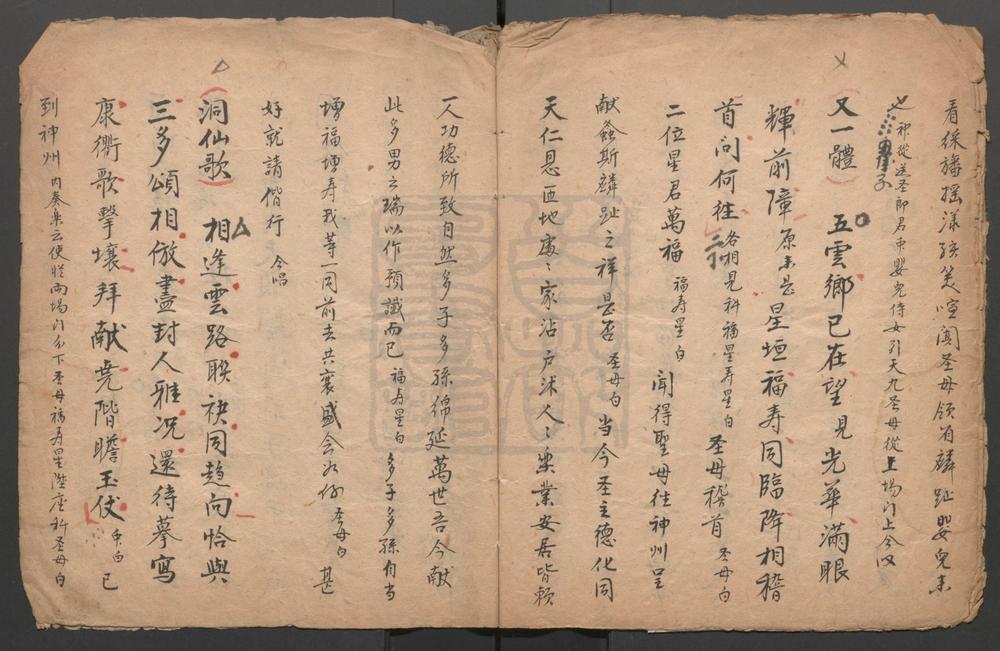 看綵旛摇漾孩笑喧闐圣母領有麟趾嬰兒来
也神從送圣郎君束嬰兒侍女引天九圣母從上場门上仝从
又一體 五雲鄉已在望見光華滿眼
輝前障原来是星垣福寿同臨降相稽
首問何往各相見科福星寿星白圣母稽首圣母白
二位星君萬福福寿星白聞得聖母往神州呈
献螽斯麟趾之祥是否圣母白當今圣主德化同
天仁恩匝地處〻家沾户沐人〻樂業安居皆賴
一人功德所致自然多子多孫綿延萬世吾今献
此多男之瑞以作預讖而已福寿星白多子多孫自当
增福增寿我等一同前去共襄盛会如何圣母白甚
好就請偕行仝唱
洞仙歌 相逢雲路聯袂同趋向恰與
三多頌相倣盡封人雅况還待摹寫
康衢歌擊壤拜献堯階瞻玉仗中白已
到神州内奏樂云使從兩場门分下圣母福寿星陞座科圣母白